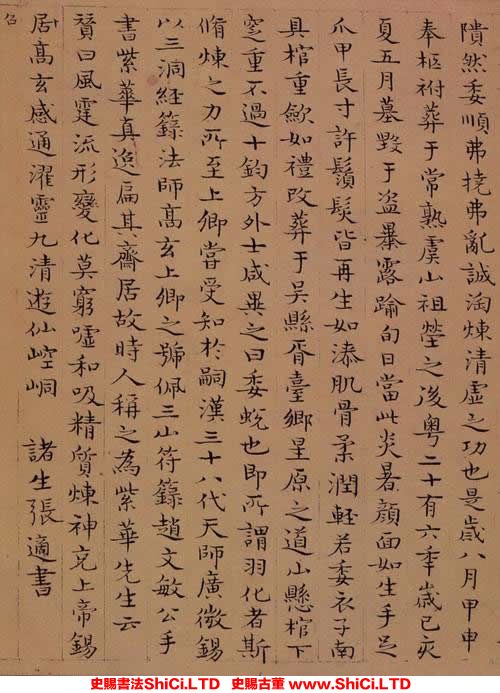 隤然委順弗撓弗亂誠淘煉清虛之功也是歲八月甲申
奉柩祔葬于常熟虞山祖塋之後粵二十有六年歲己亥
夏五月墓毀于盜暴露踰旬日當此炎暑顏面如生手足
爪甲長寸許鬚髮皆再生如漆肌骨柔潤輕若委衣子南
具棺重歛如禮改葬于吳縣胥臺鄉星原之道山懸棺下
窆重不過十鈞方外士咸異之曰委蛻也即所謂羽化者斯
脩煉之力所至上卿嘗受知於嗣漢三十八代天師廣微錫
以三洞經籙法師髙玄上卿之號佩三山符籙趙文敏公手
書紫華真逸扁其齋居故時人稱之為紫華先生云
贊曰風霆流形變化莫窮噓和吸精質煉神充上帝錫
居髙玄感通濯靈九清遊仙崆峒 諸生張適書
史賜書法ShiCi.LTD 史賜古董ShiCi.LTD